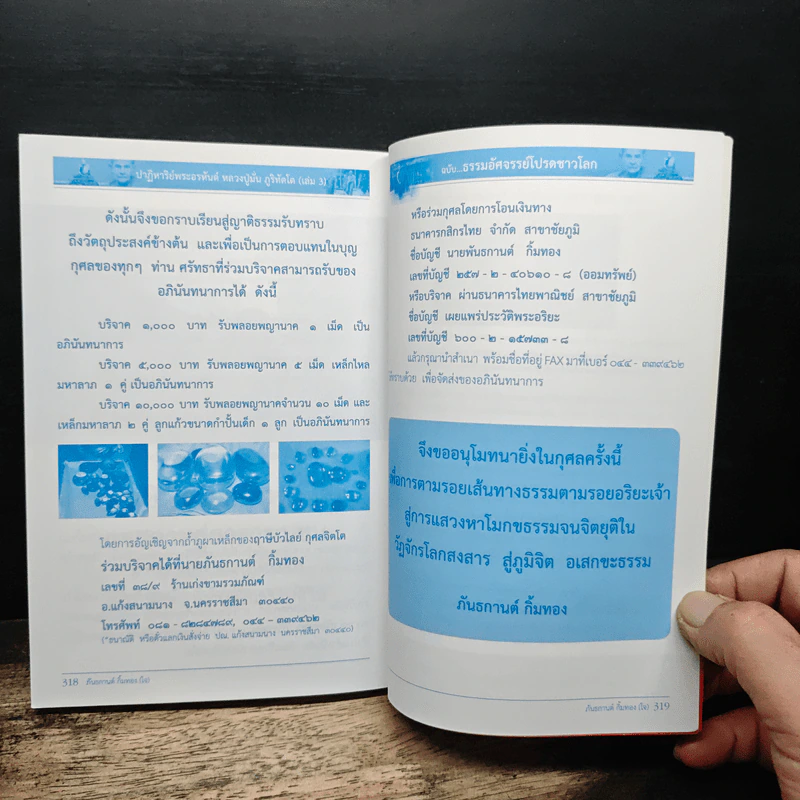 ปาฏิหาริย์พระอรหันต์ หลวงปู่มั่น ภูริทัตโต (เล่ม 3)
ดังนั้นจึงขอกราบเรียนสู่ญาติธรรมรับทราบ
ถึงวัตถุประสงค์ข้างต้น และเพื่อเป็นการตอบแทนในบุญ
กุศลของทุกๆ ท่าน ศรัทธาที่ร่วมบริจาคสามารถรับของ
อภินันทนาการได้ ดังนี้
บริจาค ๑,๐๐๐ บาท รับพลอยพญานาค ๑ เม็ด เป็น
อภินันทนาการ
บริจาค ๕,๐๐๐ บาท รับพลอยพญานาค ๕ เม็ด เหล็กไหล
มหาลาภ ๑ คู่ เป็นอภินันทนาการ
บริจาค ๑๐,๐๐๐ บาท รับพลอยพญานาคจำนวน ๑๐ เม็ด และ
เหล็กมหาลาภ ๒ คู่ ลูกแก้วขนาดกำปั้นเด็ก ๑ ลูก เป็นอภินันทนาการ
โดยการอัญเชิญจากถ้ำภูผาเหล็กของฤาษีบัวไลย์ กุศลจิตโต
ร่วมบริจาคได้ที่นายภันธกานต์ กิ้มทอง
เลขที่ ๓๘/๙ ร้านเก่งขามรวมภัณฑ์
อ.แก้งสนามนาง จ.นครราชสีมา ๓๐๔๔๐
โทรศัพท์ ๐๘๑ - ๘๒๘๔๗๘๙, ๐๔๔ - ๓๓๙๔๖๒
(*ธนาณัติ หรือตั๋วแลกเงินสั่งจ่าย ปณ. แก้งสนามนาง นครราชสีมา ๓๐๔๔๐)
318 ภันธกานต์ กิ้มทอง (ใจ)
ฉบับ...ธรรมอัศจรรย์โปรดชาวโลก
หรือร่วมกุศลโดยการโอนเงินทาง
ธนาคารกสิกรไทย จำกัด สาขาชัยภูมิ
ชื่อบัญชี นายพันธกานต์ กิ้มทอง
เลขที่บัญชี ๒๕๗ - ๒ - ๔๐๖๑๐ - ๘ (ออมทรัพย์)
หรือบริจาค ผ่านธนาคารไทยพาณิชย์ สาขาชัยภูมิ
ชื่อบัญชี เผยแพร่ประวัติพระอริยะ
เลขที่บัญชี ๖๐๐ - ๒ - ๑๕๗๓๓ - ๘
แล้วกรุณานำสำเนา พร้อมชื่อที่อยู่ FAX มาที่เบอร์ ๐๔๔ - ๓๓๙๔๖๒
ให้ทราบด้วย เพื่อจัดส่งของอภินันทนาการ
จึงขออนุโมทนายิ่งในกุศลครั้งนี้
เพื่อการตามรอยเส้นทางธรรมตามรอยอริยะเจ้า
สู่การแสวงหาโมกขธรรมจนจิตยุติใน
วัฏจักรโลกสงสาร สู่ภูมิจิต อเสกขะธรรม
ภันธกานต์ กิ้มทอง
ภันธกานต์ กิ้มทอง (ใจ) 319